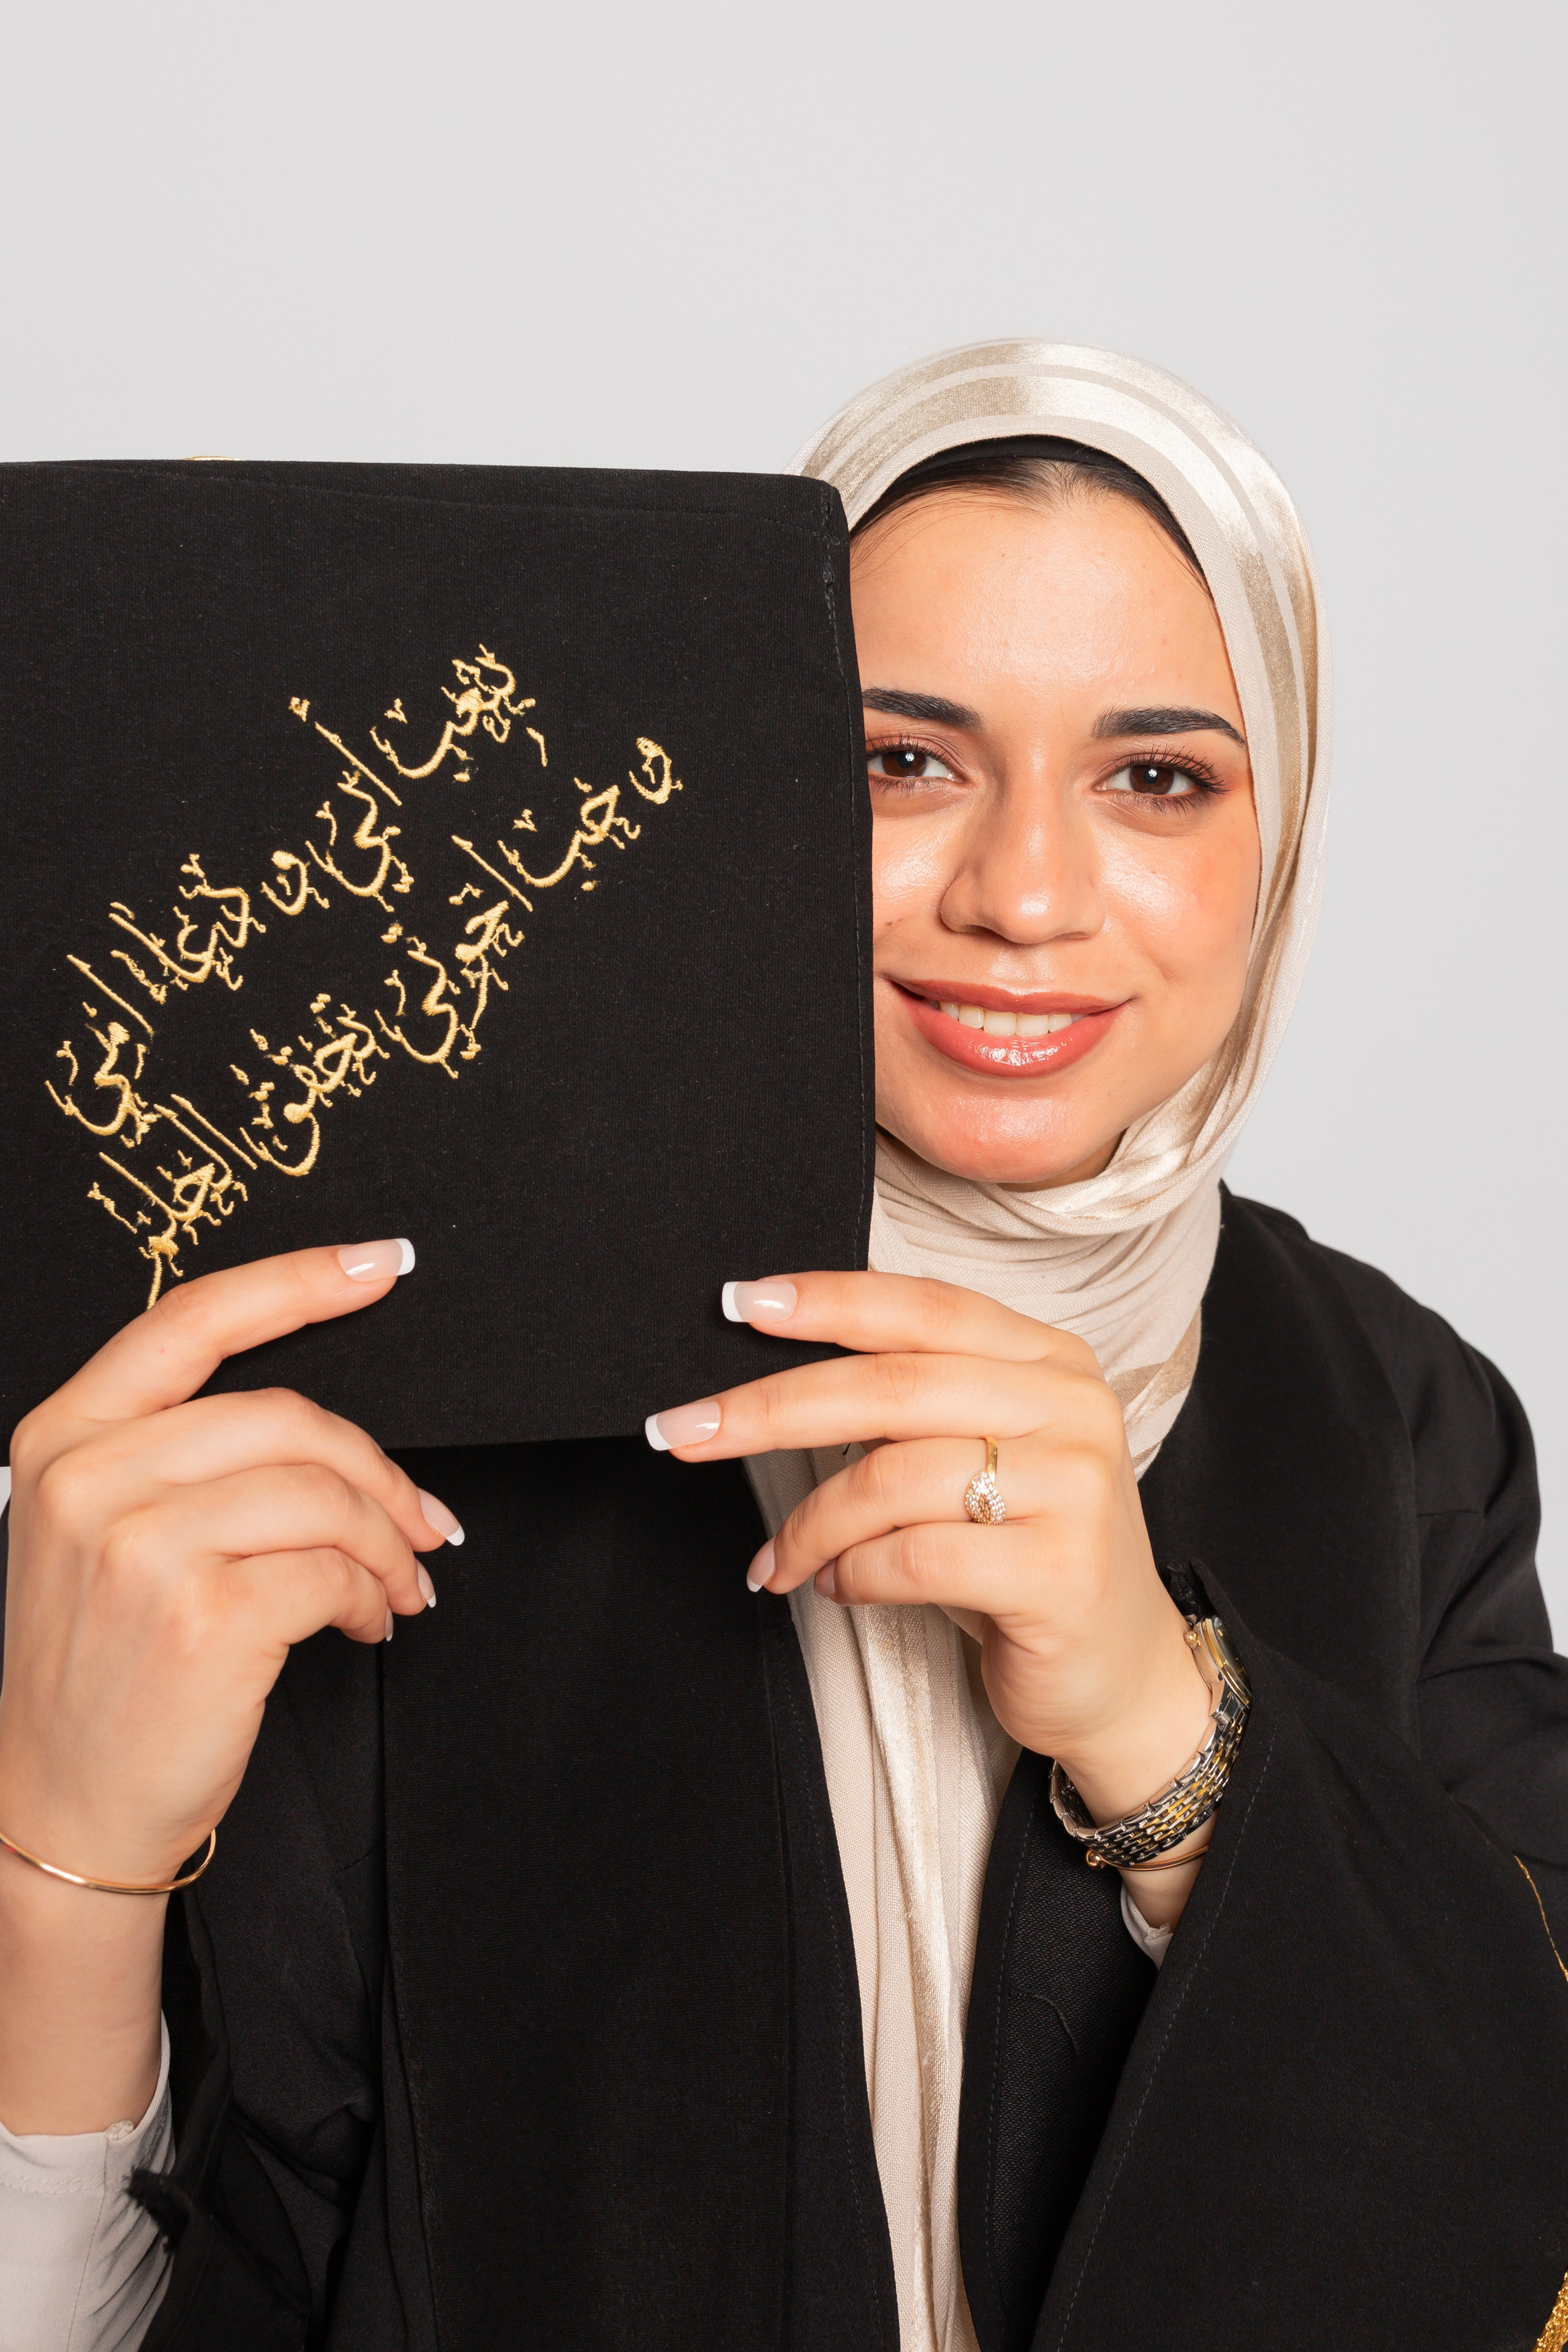 بتعب أبي و دعاء أمي
و حب اخوتي تحقق الحلم